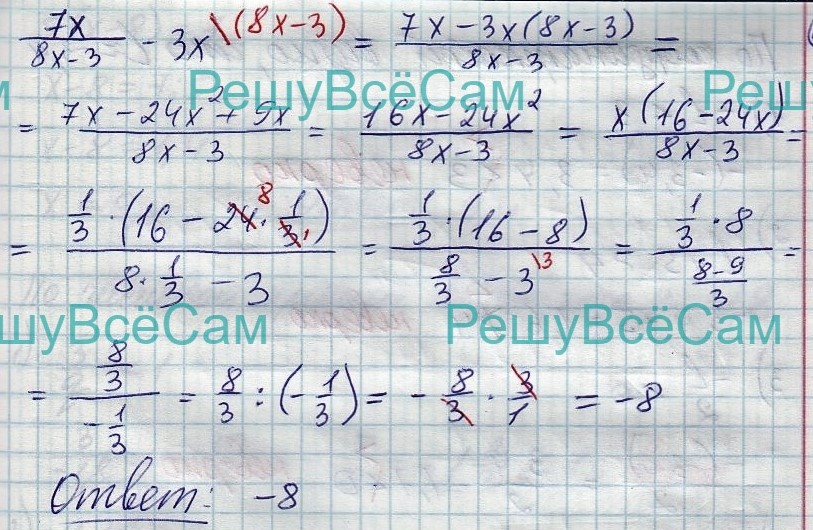 7x/(8x-3) - 3x \(8x-3) = (7x-3x(8x-3))/(8x-3) =
РешуВсёСам
= (7x-24x²+9x)/(8x-3) = (16x-24x²)/(8x-3) = x(16-24x)/(8x-3) =
= (1/3·(16-24 8·1/3 1))/(8·1/3-3) = (1/3·(16-8))/(8/3-3\3) = (1/3·8)/((8-9)/3) =
шуВсёСам РешуВсёСам
= (8/3)/(-1/3) = 8/3 : (-1/3) = -8/3·3/1 = -8
Ответ: -8